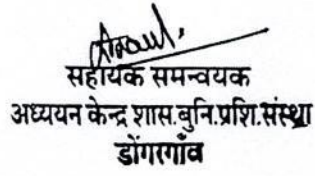 सहायक समन्वयक
अध्ययन केन्द्र शास.बुनि.प्रशि.संस्था
डोंगरगाँव